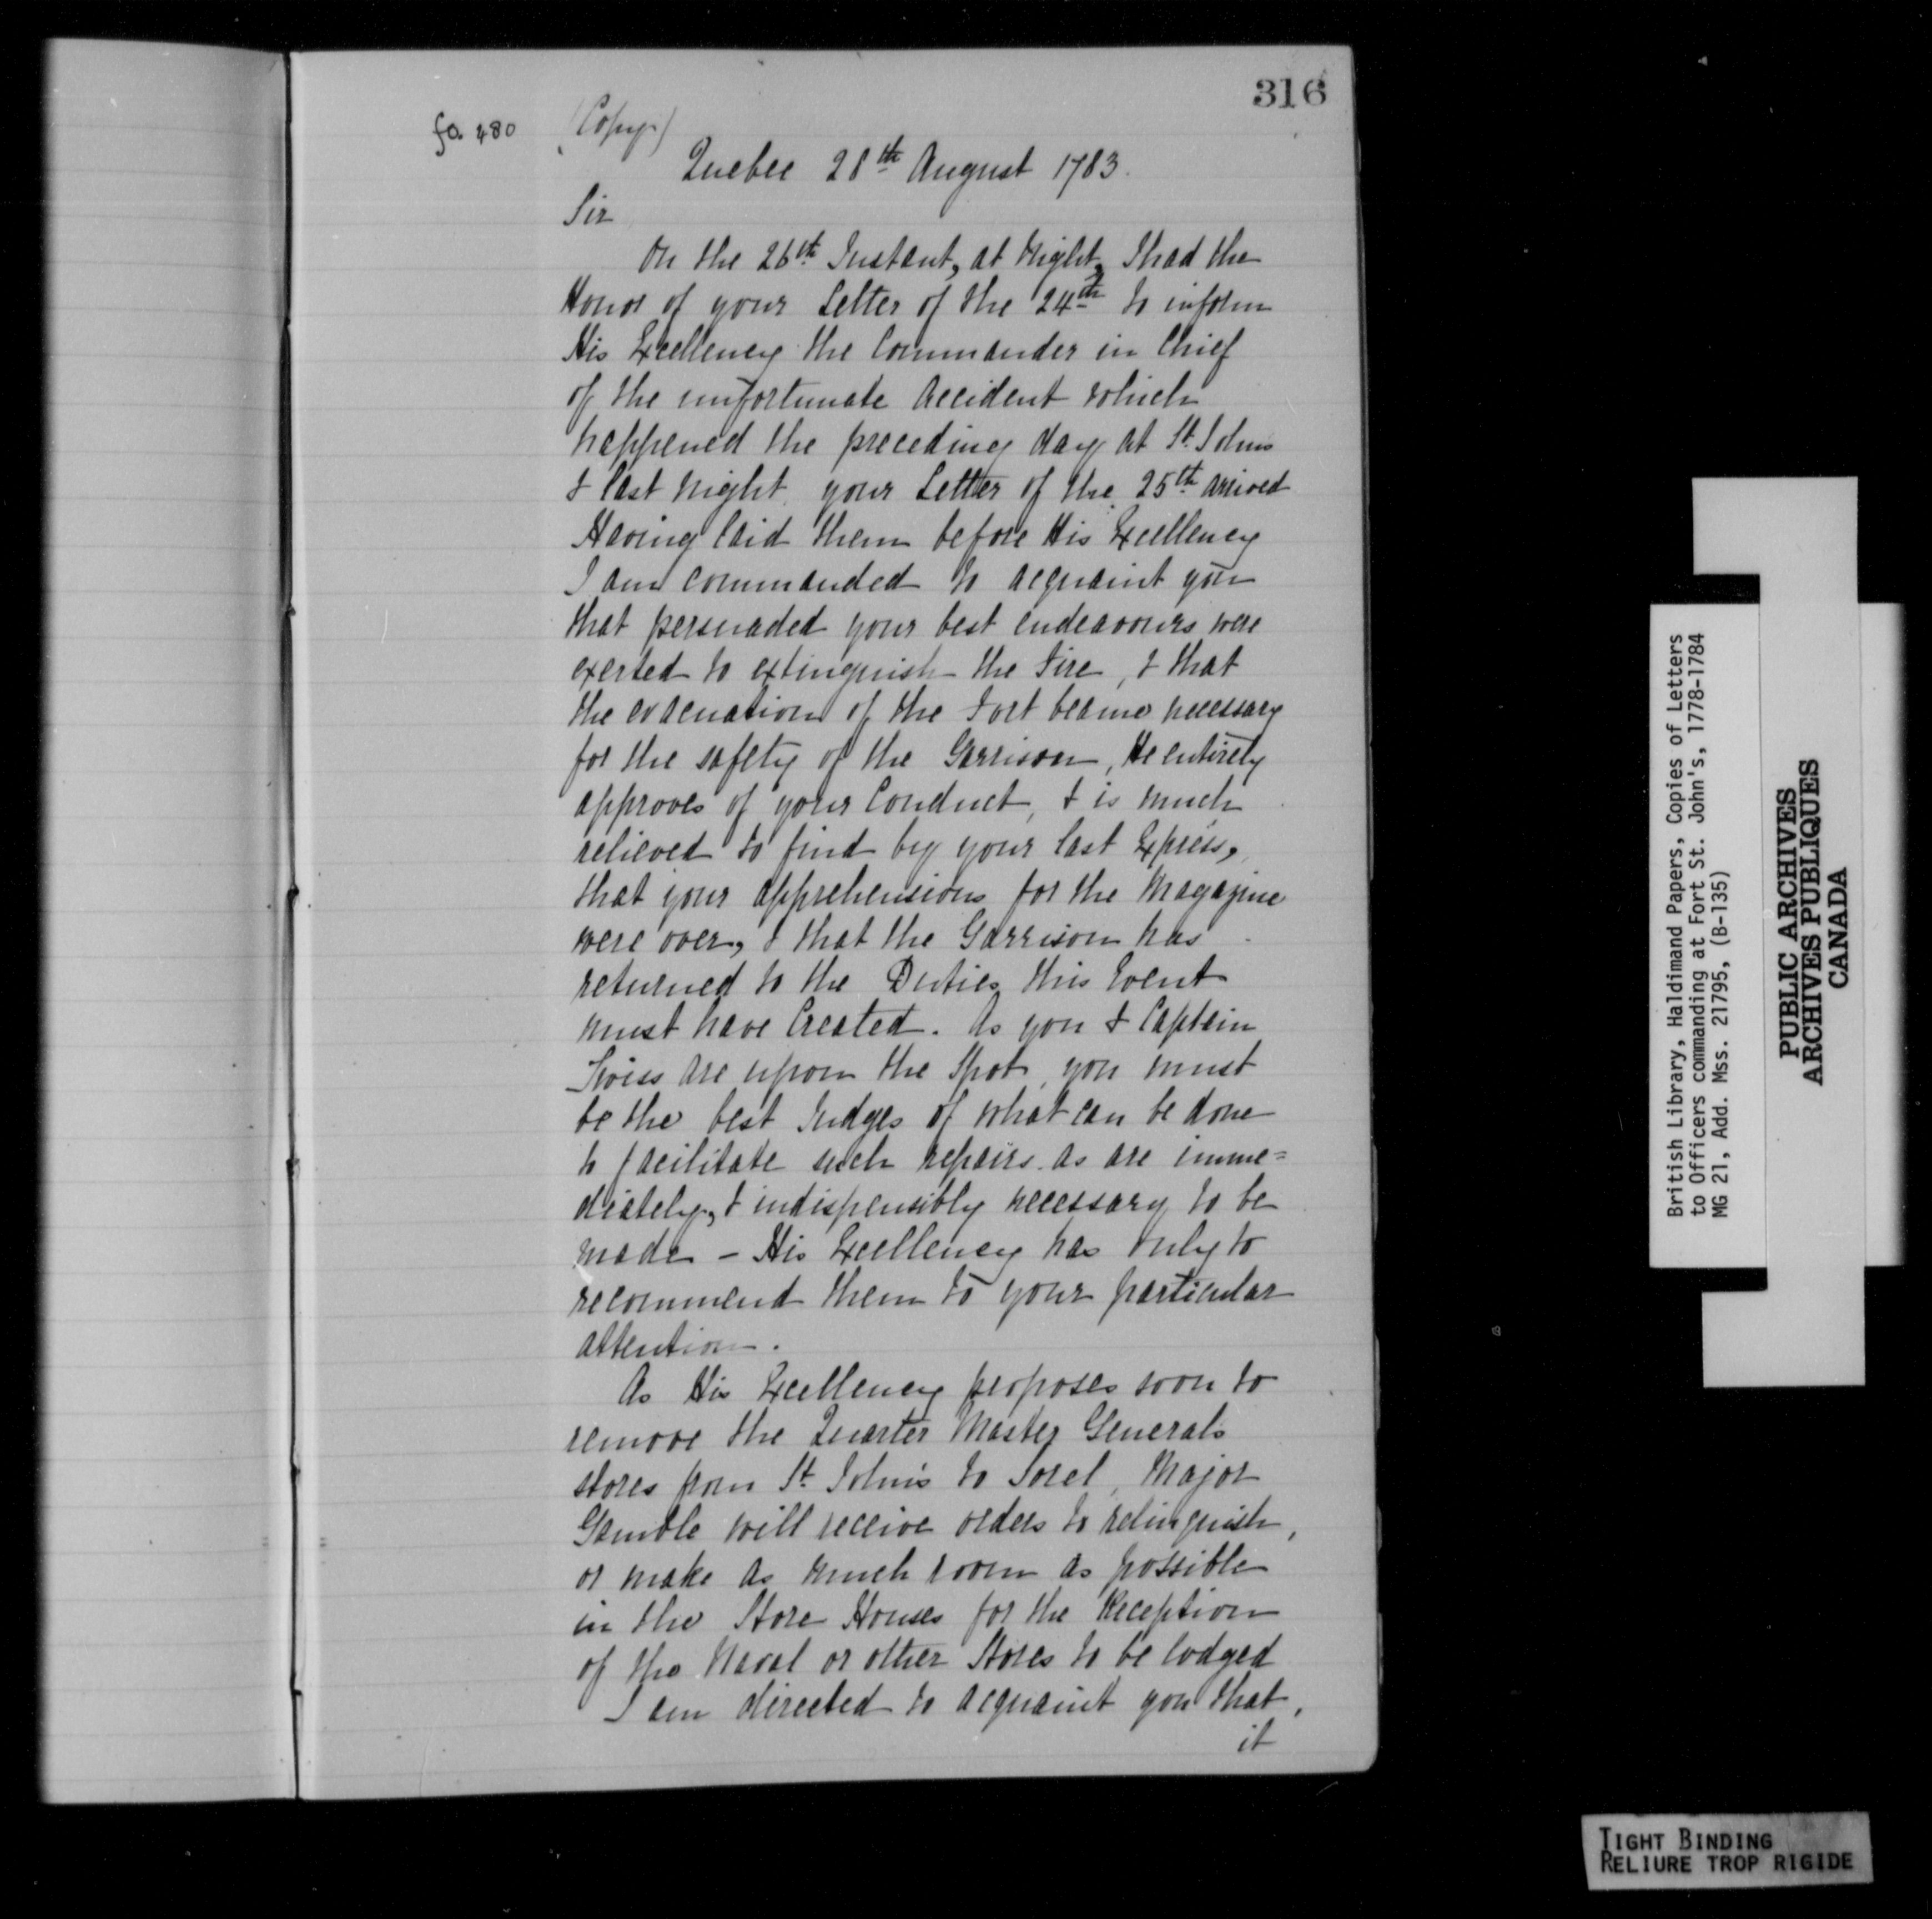 316
fo. 480
(Copy)
Quebec 28th August 1783.
Sir
On the 26th Instant, at Night, I had the
Honor of your Letter of the 24th to inform
His Excellency the Commander in Chief
of the unfortunate Accident which
happened the preceding day at St. Johns
& last night your Letter of the 25th arrived
Having laid them before His Excellency
I am commanded to acquaint you
that persuaded your best endeavours were
exerted to extinguish the Fire, & that
the evacuation of the Fort became necessary
for the safety of the Garrison, He entirely
approves of your Conduct, & is much
relieved to find by your last Express,
that your apprehensions for the Magazine
were over, & that the Garrison has
returned to the Duties this Event
must have Created. As you & Captain
Twiss are upon the Spot, you must
be the best Judges of what can be done
to facilitate such repairs as are imme=
diately, & indispensibly necessary to be
made - His Excellency has only to
recommend them to your particular
attention.
As His Excellency proposes soon to
remove the Quarter Master Generals
stores from St. John's to Sorel, Major
Gamble will receive orders to relinquish,
or make as much room as possible
in the Store Houses for the Reception
of the Naval or other Stores to be lodged
I am directed to acquaint you that,
it
British Library, Haldimand Papers, Copies of Letters
to Officers commanding at Fort St. John's, 1778-1784
MG 21, Add. Mss. 21795, (B-135)
PUBLIC ARCHIVES
ARCHIVES PUBLIQUES
CANADA
TIGHT BINDING
RELIURE TROP RIGIDE